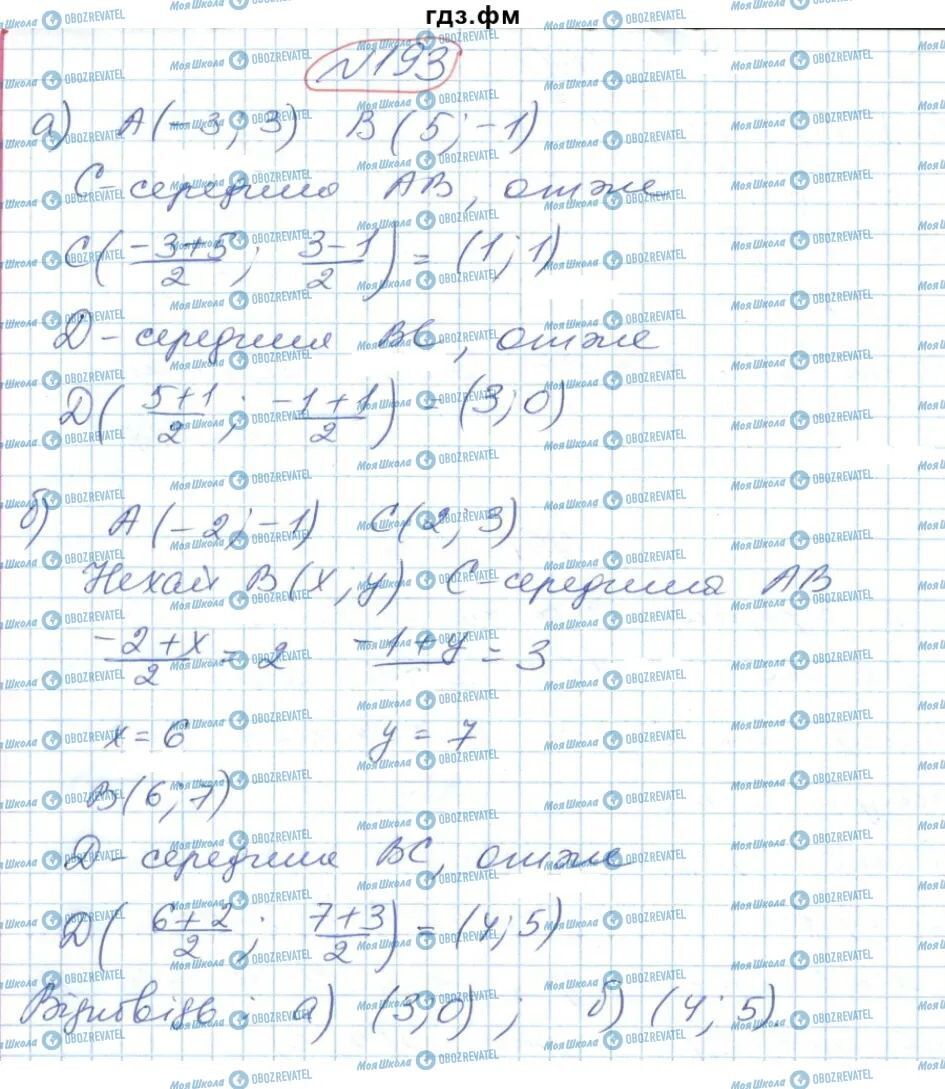 гдз.фм
№193
а) A(-3; 3) B(5; -1)
C-середина AB, отже
C(\frac{-3+5}{2}; \frac{3-1}{2}) = (1; 1)
D-середина BC, отже
D(\frac{5+1}{2}; \frac{-1+1}{2}) = (3; 0)
б) A(-2; -1) C(2; 3)
Нехай B(x, y) C-середина AB
\frac{-2+x}{2} = 2 \frac{-1+y}{2} = 3
x = 6 y = 7
B(6; 7)
D-середина BC, отже
D(\frac{6+2}{2}; \frac{7+3}{2}) = (4; 5)
Відповідь: а) (3; 0); б) (4; 5)
МояШкола OBOZREVATEL